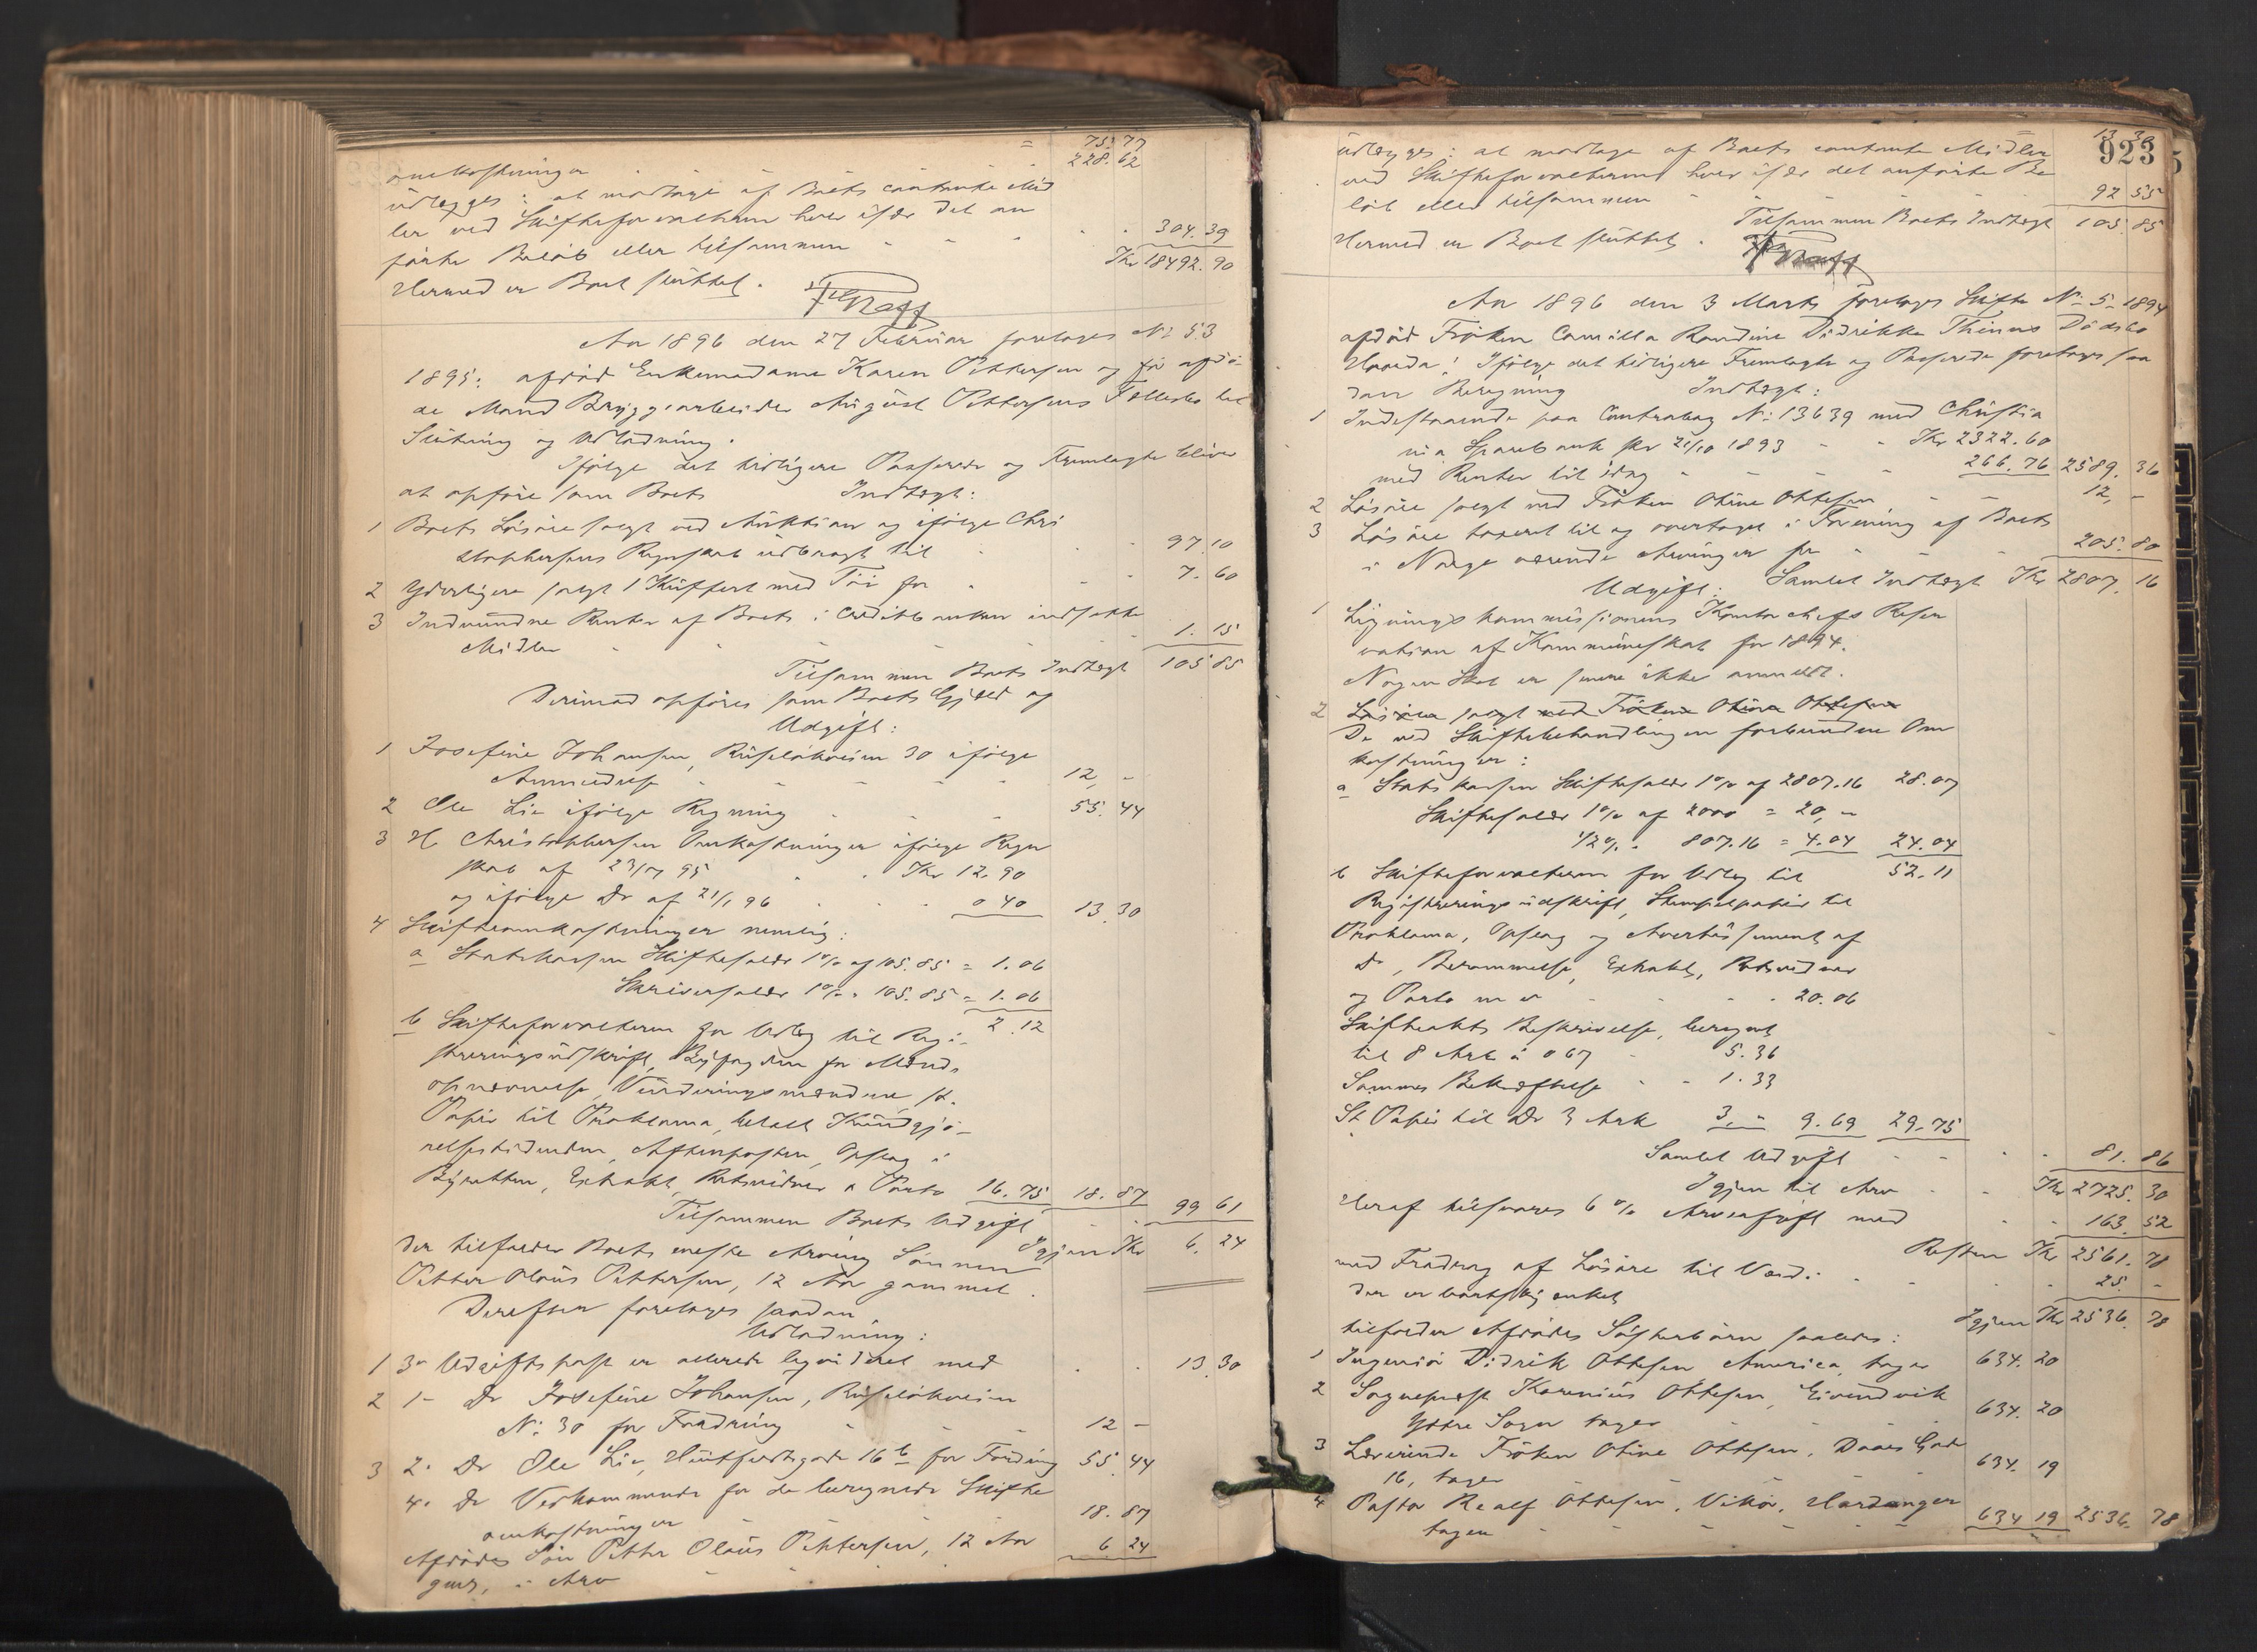 = 75.77
omkostninger 228.62
udlægges: at modtage af Boets contante Mid
ler ved Skifteforvalteren hver især det an
førte Beløb eller tilsammen 304.39
Hermed er Boet sluttet. Kr 18492.90
Aar 1896 den 27 Februar foretages No 53
1895: afdød Enkemadame Karen Pettersen og før afdø-
de Mand Bryggearbeider August Pettersens Fællesbo til
Slutning og Udlodning.
Ifølge det tidligere Passerede og Fremlagte bliver
at opføre som Boets Indtægt:
1 Boets Løsøre solgt ved Auktion og ifølge Chri
stophersens Regnskab udbragt til 97.10
2 Yderligere solgt 1 Kuffert med Tøi for 7.60
3 Indvundne Renter af Boets i Creditbanken indsatte
Midler 1.15
Tilsammen Boets Indtægt 105 85
Derimod opføres som Boets Gjæld og
Udgift:
1 Josefine Johansen, Ruseløkveien 30 ifølge
Anmeldelse 12, -
2 Ole Lie ifølge Regning 55.44
3 H. Christophersen Omkostninger ifølge Regn
skab af 23/7 95 Kr 12.90
og ifølge Do af 21/1 96 0 40 13.30
4 Skifteomkostninger nemlig:
a Statskassen Skiftesalær 1% af 105.85 = 1.06
Skriversalær 1% " 105.85 = 1.06
2.12
b Skifteforvalteren for Udlæg til Regi-
streringsudskrift, Byfogden for Mænds
opnævnelse, Vurderingsmændene, st.
Papir til Proklama, betalt Kundgjø-
relsestidenden, Aftenposten, Opslag i
Byretten, Extrakt, Retsvidner & Porto 16.75 18.87
Tilsammen Boets Udgift 99 61
Igjen Kr 6.24
der tilfalder Boets eneste Arving Sønnen
Petter Olaus Pettersen, 12 Aar gammel.
Derefter foretages saadan
Udlodning:
1 3- Udgiftspost er allerede liqvideret med 13.30
2 1- Do Josefine Johansen, Ruseløkveien
No 30 for Fordring 12 -
3 2- Do Ole Lie, Huitfeldtsgade 16 b for Fordring 55.44
4- Do Vedkommende for de beregnede Skifte
omkostninger 18.87
Afdødes Søn Petter Olaus Pettersen, 12 Aar
gml, i Arv 6 24
923
13 30
udlægges: at modtage af Boets contante Midler
ved Skifteforvalteren hver især det anførte Be
løb eller tilsammen 92 55
Tilsammen Boets Indtægt 105.85
Hermed er Boet sluttet.
Aar 1896 den 3 Marts foretages Skifte No 5-1894
afdød Frøken Camilla Randine Didrikke Dødsbo
Ifølge det tidligere Fremlagte og Passerede foretages saa
dan Beregning Indtægt:
1 Indestaaende paa Contrabog No 13639 med Christia
nia Sparebank pr 21/10 1893 Kr 2322.60
med Renter til idag 266.76 2589.36
2 Løsøre solgt ved Frøken Otine Ottesen 12, -
3 Løsøre taxeret til og overtaget i Forening af Boets
i Norge værende Arvinger for 205.80
Udgift: Samlet Indtægt Kr 2807.16
1 Ligningskommissionens Kontorchefs Reser
vation af Kommuneskat for 1894.
Nogen Skat er senere ikke anmeldt.
2 Løsøre solgt ved Frøken Otine Ottesen
De ved Skiftebehandlingen forbundne Om
kostninger:
a Statskassen Skiftesalær 1% af 2807.16 28.07
Skiftesalær 1% af 2000 = 20, -
1/2% " 807.16 = 4.04 24.04
b Skifteforvalteren for Udlæg til 52.11
Registreringsudskrift, Stempelpapir til
Proklama, Opslag og Avertissement af
Do, Berammelse, Extrakt, Retsvidner
og Porto m. v 20.06
Skifteakts Beskrivelse, beregnet
til 8 Ark à 0 67 5.36
Sammes Bekræftelse 1.33
St. Papir til Do 3 Ark 3, - 9.69 29.75
Samlet Udgift 81.86
Igjen til Arv Kr 2725.30
Heraf tilsvares 6% Arveafgift med 163.52
Resten Kr 2561.78
med Fradrag af Løsøre til Værdi 25. -
der er bortskjænket
Igjen Kr 2536.78
tilfalder Afdødes Søsterbørn saaledes:
1 Ingeniør Didrik Ottesen America, tager 634.20
2 Sogneprest Karenius Ottesen, Eivindvik
Ytre Sogn tager 634.20
3 Lærerinde Frøken Otine Ottesen, Daaes Gade
16, tager 634.19
4 Pastor Realf Ottesen, Vikør, Hardanger
tager 634 19 2536.78